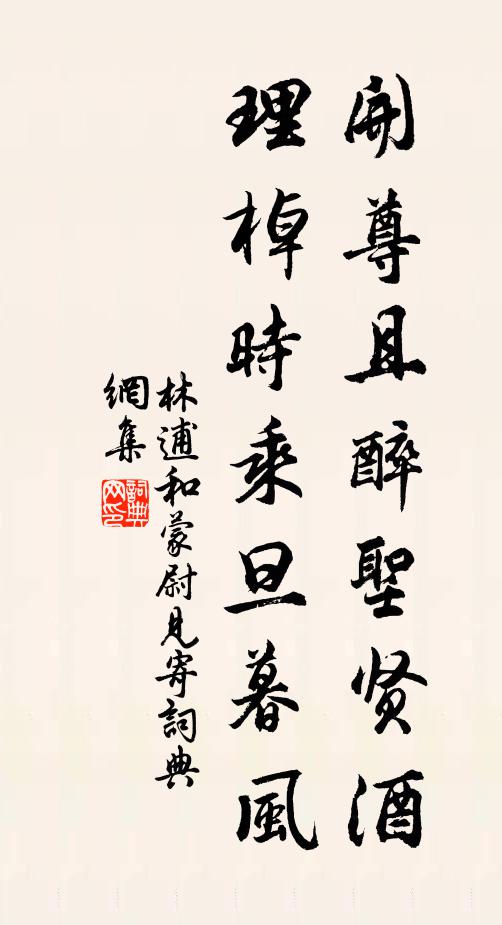 開尊且醉聖贤酒
理棹時乘旦暮風
林逋和蒙尉見寄詞典
網集
詞典
网印